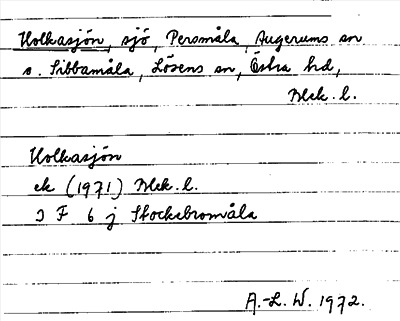 Holkasjön, sjö, Persmåla, Augerums sn
o. Sibbamåla, Lösens sn, Östra hd,
Blek. l.
Holkasjön
ek (1971) Blek. l.
3 F 6 j Stocksbromåla
A.-L. W. 1972.